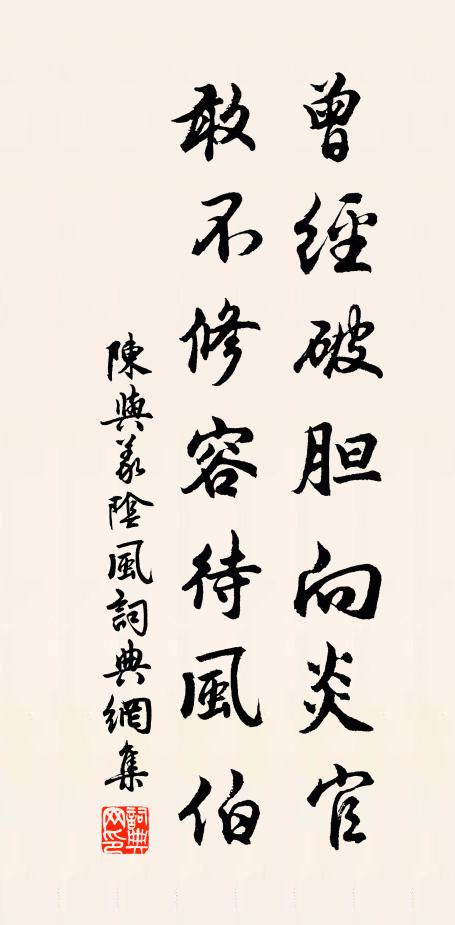 曾經破胆向炎官
敢不修容待風伯
陳與義陰風詞典網集
詞典网印